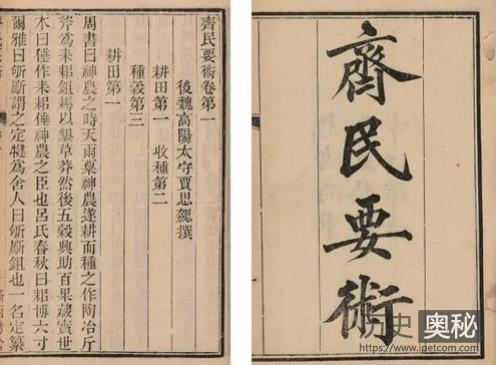 齊民要術
齊民要術卷第一
後魏高陽太守賈思勰撰
耕田第一 收種第二
種穀第三
耕田第一
周書曰神農之時天雨粟神農遂耕而種之作陶冶斤
斧爲耒耜鉏耨以墾草莽然後五穀興助百果藏實世
本曰倕作耒耜倕神農之臣也呂氏春秋曰耜博六寸
爾雅曰斪斸謂之定犍爲舍人曰斪斸鉏也一名定纂
历史奥秘
https://www.ipetcom.com